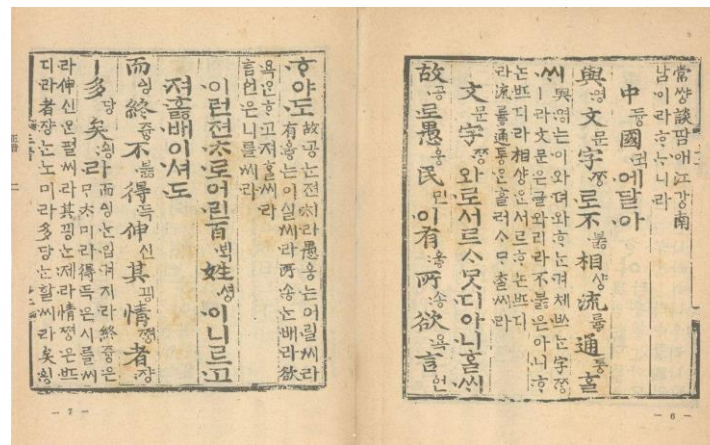 常썅談땀애江강南
남이라ᄒᆞᄂᆞ니라
中듕國귁에달아
與영文문字ᄍᆞᆼ로不붏相샹流륳通통ᄒᆞᆯ
ᄊᆡ與영는이와뎌와ᄒᆞᄂᆞᆫ겨체ᄡᅳ는字ᄍᆞᆼ
ㅣ라文문은글와리라不붏은아니ᄒᆞ
논ᄠᅳ디라相샹ᄋᆞᆫ서르ᄒᆞ논ᄠᅳ디
라流륳通통ᄋᆞᆫ흘러ᄉᆞᄆᆞᄎᆞᆯ씨라
文문字ᄍᆞᆼ와로서르ᄉᆞᄆᆞᆺ디아니ᄒᆞᆯᄊᆡ
故공로愚웅民민이有ᅌᅮᇢ所송欲욕言언
— 6 —
ᄒᆞ야도故공ᄂᆞᆫ젼ᄎᆡ라愚웅는어릴씨라
有ᅌᅮᇢ는이실씨라所송ᄂᆞᆫ배라欲
욕ᄋᆞᆫᄒᆞ고져ᄒᆞᆯ씨라
言언은니를씨라
이런젼ᄎᆞ로어린百ᄇᆡᆨ姓셩이니르고
져ᄒᆞᇙ배이셔도
而ᅀᅵᆼ終즁不붏得득伸신其끵情쪄ᇰ者쟝
ㅣ多당矣ᅌᅴᆼ라而ᅀᅵᆼᄂᆞᆫ입겨지라終즁은
ᄆᆞᄎᆞ미라得득은시를씨
라伸신은펼씨라其끵는제라情쪄ᇰ은ᄠᅳ
디라者쟝ᄂᆞᆫ노미라多당ᄂᆞᆫ할씨라矣ᅌᅴᆼ
— 7 —